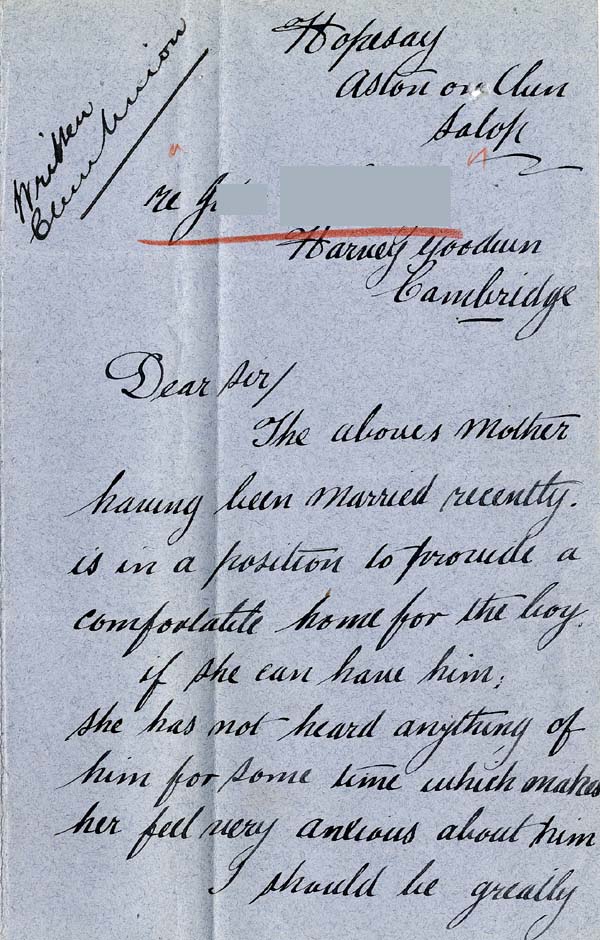 Written
Clun Union
Hopesay
Aston on Clun
Salop
re Gi
Harvey Goodwin
Cambridge
Dear Sir/
The aboves Mother
having been married recently.
is in a position to provide a
comfortable home for the boy.
if she can have him;
she has not heard anything of
him for some time which makes
her feel very anxious about him
I should be greatly